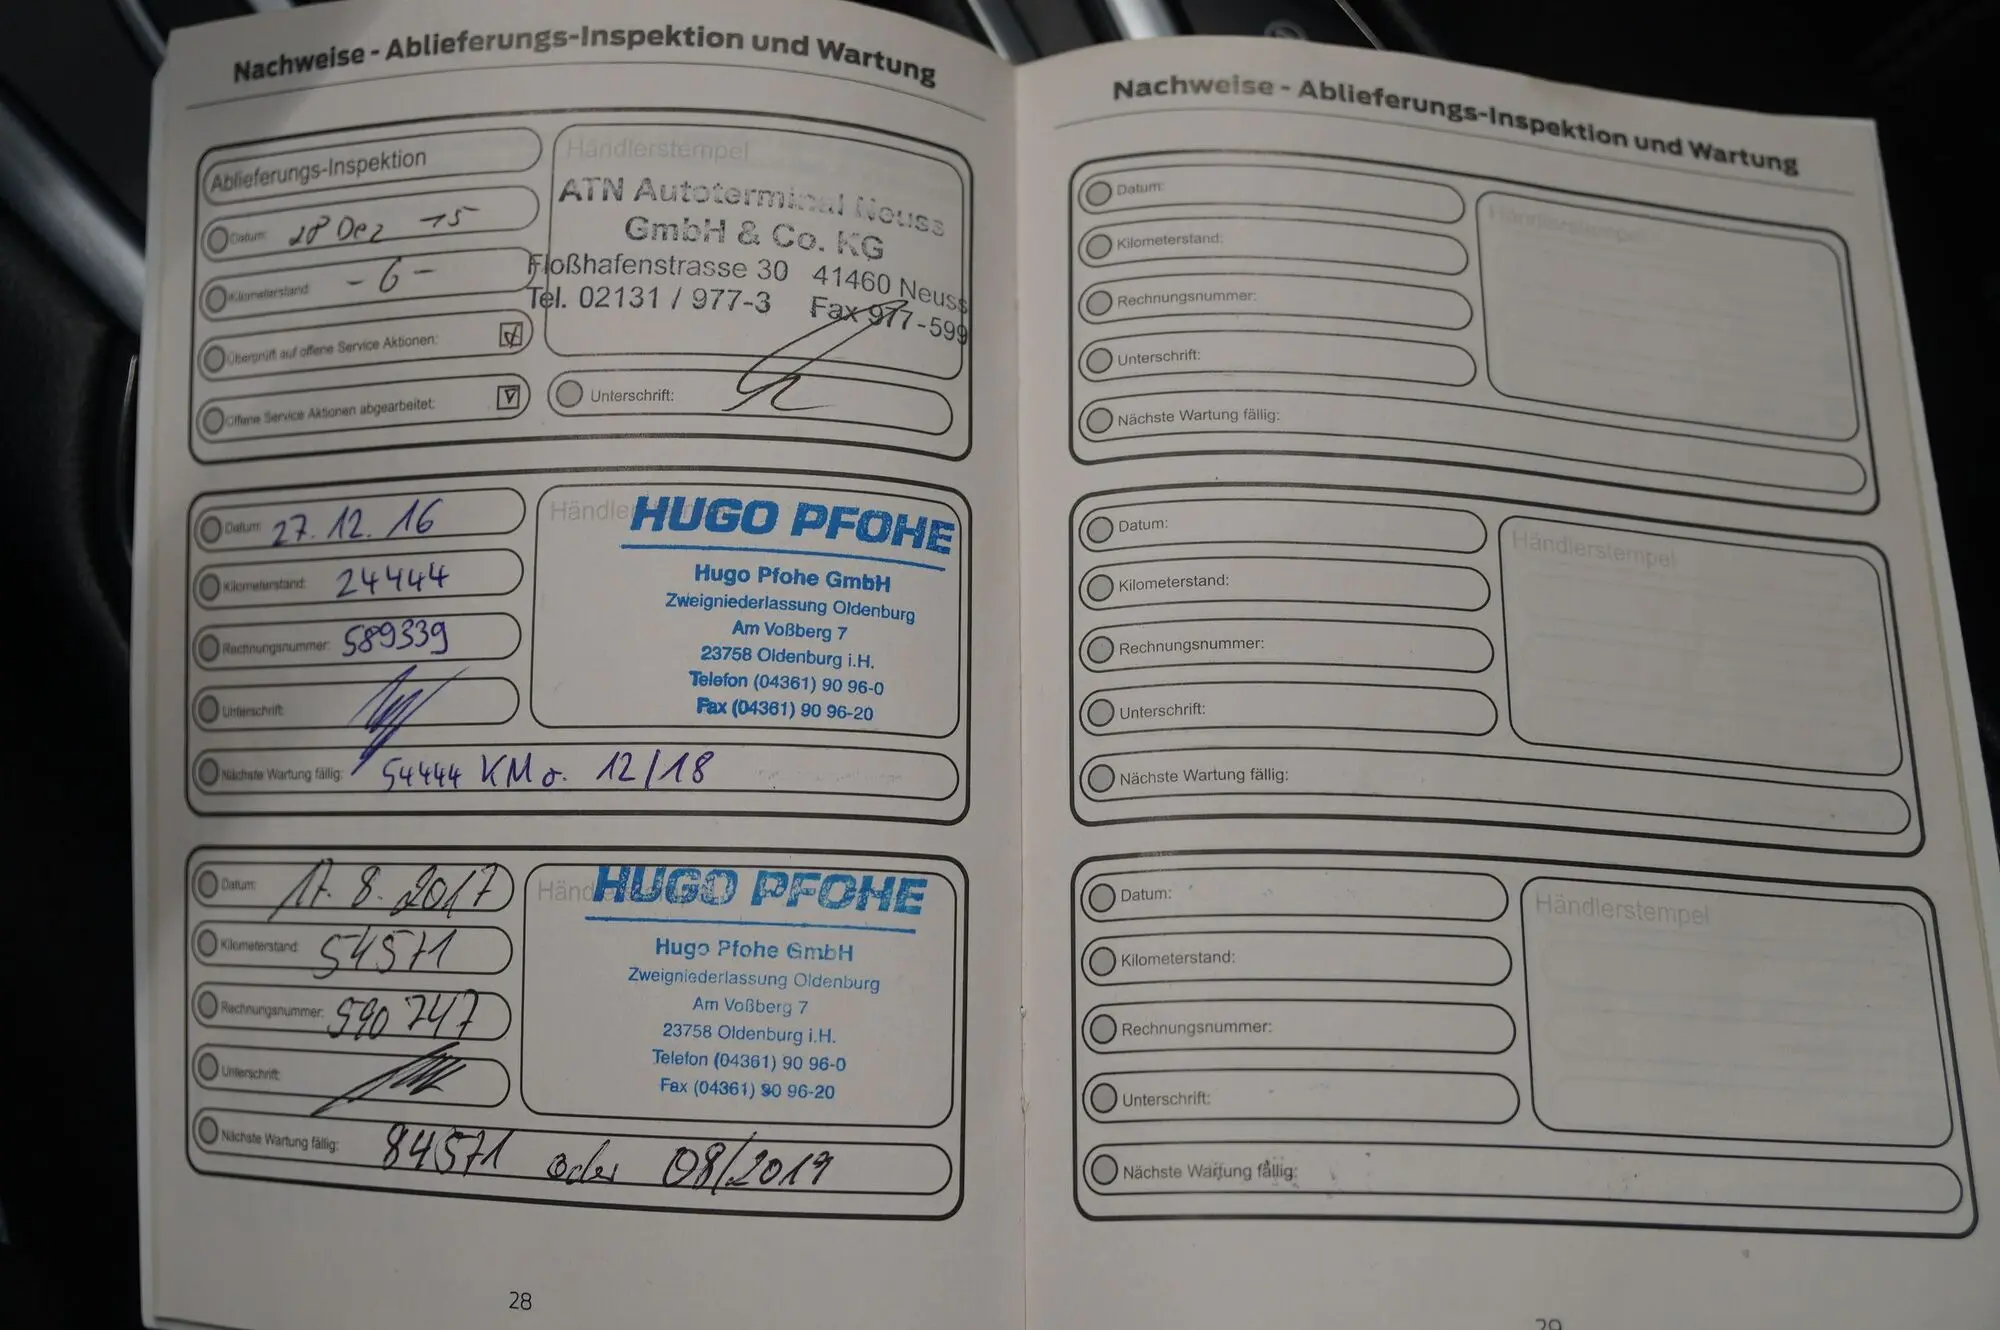 Nachweise - Ablieferungs-Inspektion und Wartung
Ablieferungs-Inspektion
Datum: 28 Dez 15
Kilometerstand: - 6 -
Überprüft auf offene Service Aktionen:
Offene Service Aktionen abgearbeitet:
Händlerstempel
ATN Autoterminal Neuss
GmbH & Co. KG
Floßhafenstrasse 30 41460 Neuss
Tel. 02131 / 977-3 Fax 977-599
Unterschrift:
Datum: 27.12.16
Kilometerstand: 24444
Rechnungsnummer: 589339
Unterschrift:
Nächste Wartung fällig: 54444 KM o. 12/18
HUGO PFOHE
Hugo Pfohe GmbH
Zweigniederlassung Oldenburg
Am Voßberg 7
23758 Oldenburg i.H.
Telefon (04361) 90 96-0
Fax (04361) 90 96-20
Datum: 17.8.2017
Kilometerstand: 54571
Rechnungsnummer: 590747
Unterschrift:
Nächste Wartung fällig: 84571 oder 08/2019
HUGO PFOHE
Hugo Pfohe GmbH
Zweigniederlassung Oldenburg
Am Voßberg 7
23758 Oldenburg i.H.
Telefon (04361) 90 96-0
Fax (04361) 90 96-20
28
Nachweise - Ablieferungs-Inspektion und Wartung
Datum:
Kilometerstand:
Rechnungsnummer:
Unterschrift:
Nächste Wartung fällig:
Händlerstempel
Datum:
Kilometerstand:
Rechnungsnummer:
Unterschrift:
Nächste Wartung fällig:
Händlerstempel
Datum:
Kilometerstand:
Rechnungsnummer:
Unterschrift:
Nächste Wartung fällig:
Händlerstempel
29